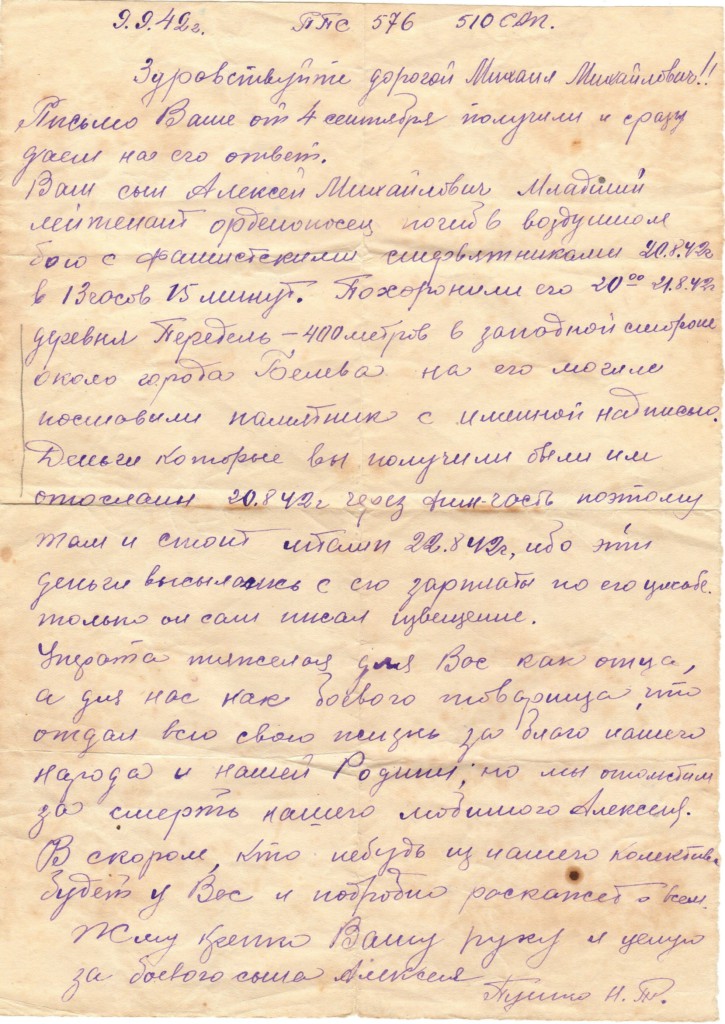 9.9.42г. ППС 576 510 САП.
Здравствуйте дорогой Михаил Михайлович!!
Письмо Ваше от 4 сентября получили и сразу
даем на его ответ.
Ваш сын Алексей Михайлович Младший
лейтенант орденоносец погиб в воздушном
бою с фашистскими стервятниками 20.8.42г
в 13 часов 15 минут. Похоронили его 20⁰⁰ 21.8.42г
деревня Передель – 400 метров в западной стороне
около города Белева на его могиле
поставили памятник с именной надписью.
Деньги которые вы получили были им
отосланы 20.8.42г через фин-часть поэтому
там и стоит штамп 22.8.42г, ибо эти
деньги высылались с его зарплаты по его
только он сам писал извещение.
Утрата тяжелая для Вас как отца,
а для нас как боевого товарища, что
отдал всю свою жизнь за благо нашего
народа и нашей Родины, но мы отомстим
за смерть нашего любимого Алексея.
В скором, кто небудь из нашего колектива
будет у Вас и подробно раскажет о всем.
Жму крепко Вашу руку и целую
за боевого сына Алексея